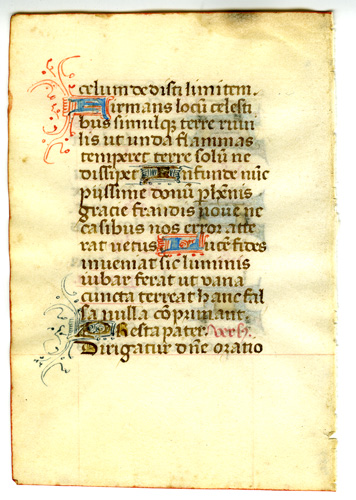 celum dedisti limitem.
Firmans locū celesti
bus simulqꝫ terre riuu
lis ut unda flammas
temperet terre solū ne
dissipet Infunde nūc
piissime donū phenis
gracie fraudis noue ne
casibus nos error atte
rat uetus Lucē fides
inueniat sic luminis
iubar ferat ut uana
cuncta terreat hanc fal
sa nulla cōprimant.
Presta pater. Vers.
Dirigatur dn̄e oratio